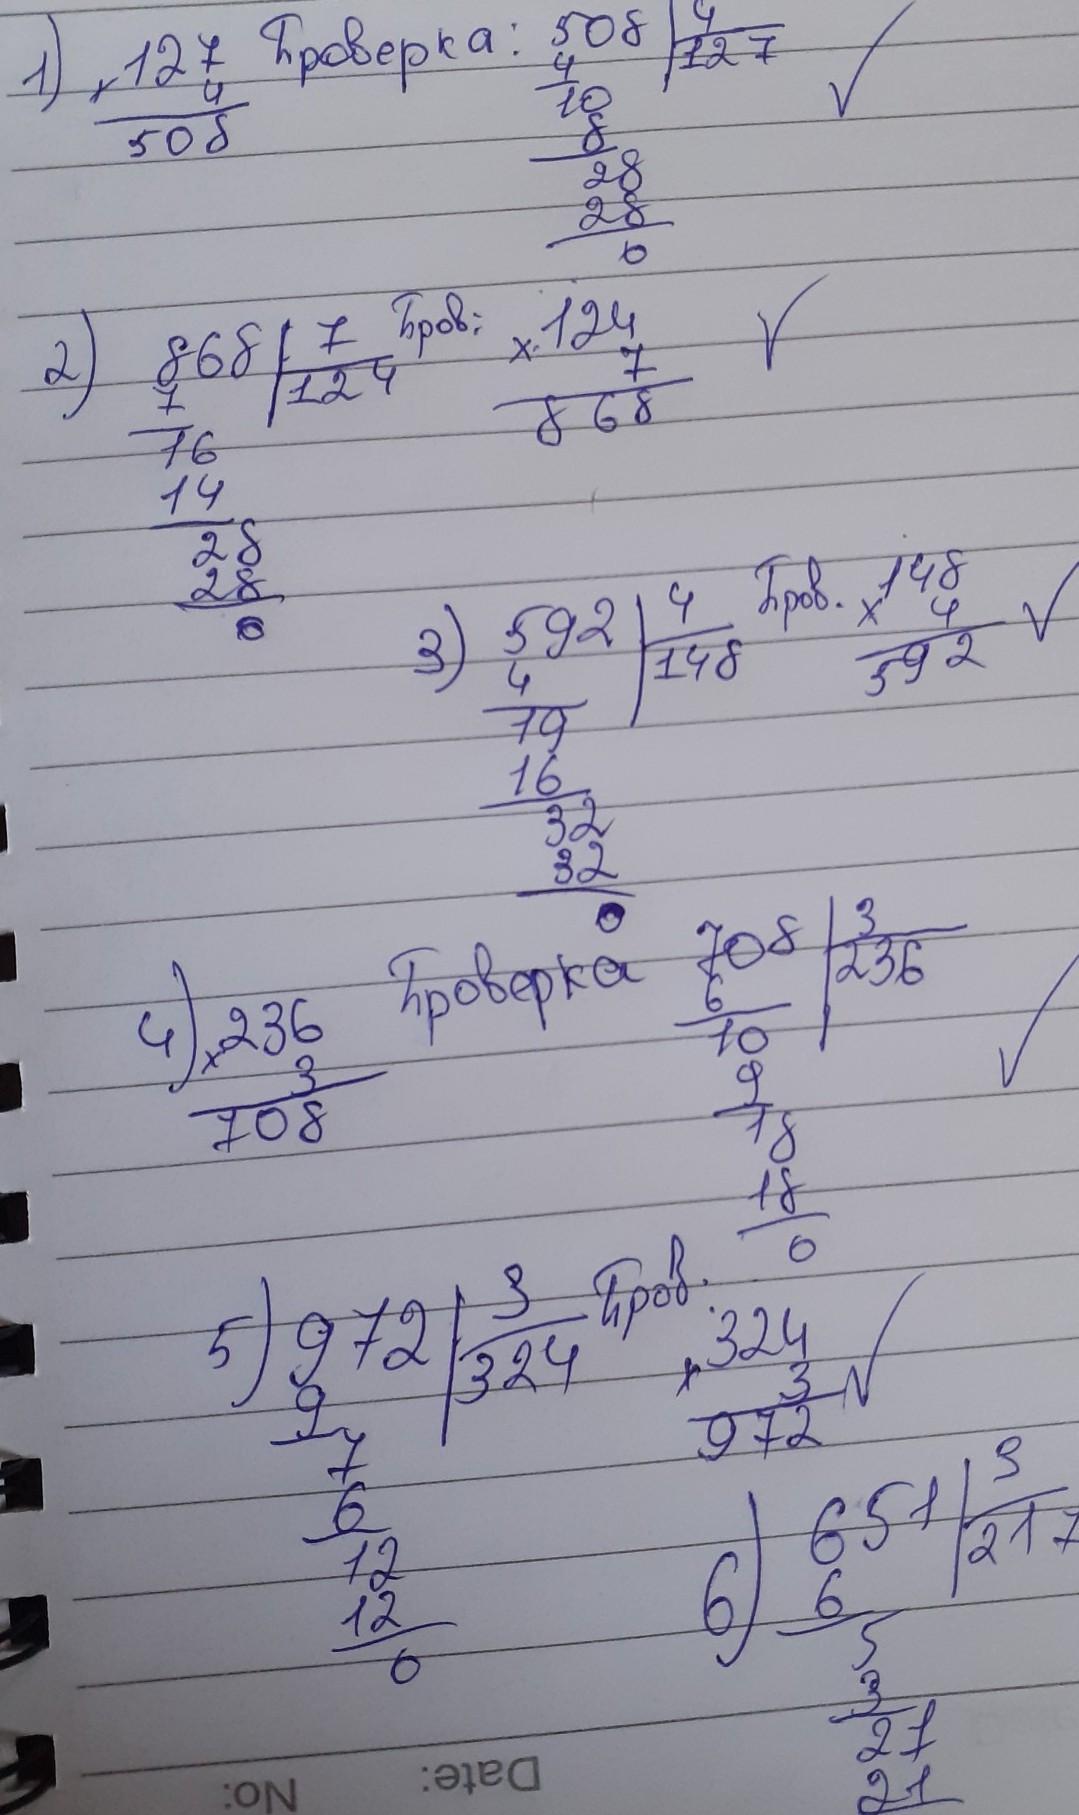 1) 127 Проверка: 508 | 4
x 4 4 127
508 10
8
28
28
0
2) 868 | 7 Пров: 124
7 124 x 7
16 868
14
28
28
0
3) 592 | 4 Пров. 148
4 148 x 4
19 592
16
32
32
0
4) 236 Проверка 708 | 3
x 3 6 236
708 10
9
18
18
0
5) 972 | 3 Пров. 324
9 324 x 3
7 972
6
12
12
0
6) 651 | 3
6 217
5
3
21
21
No: Date: